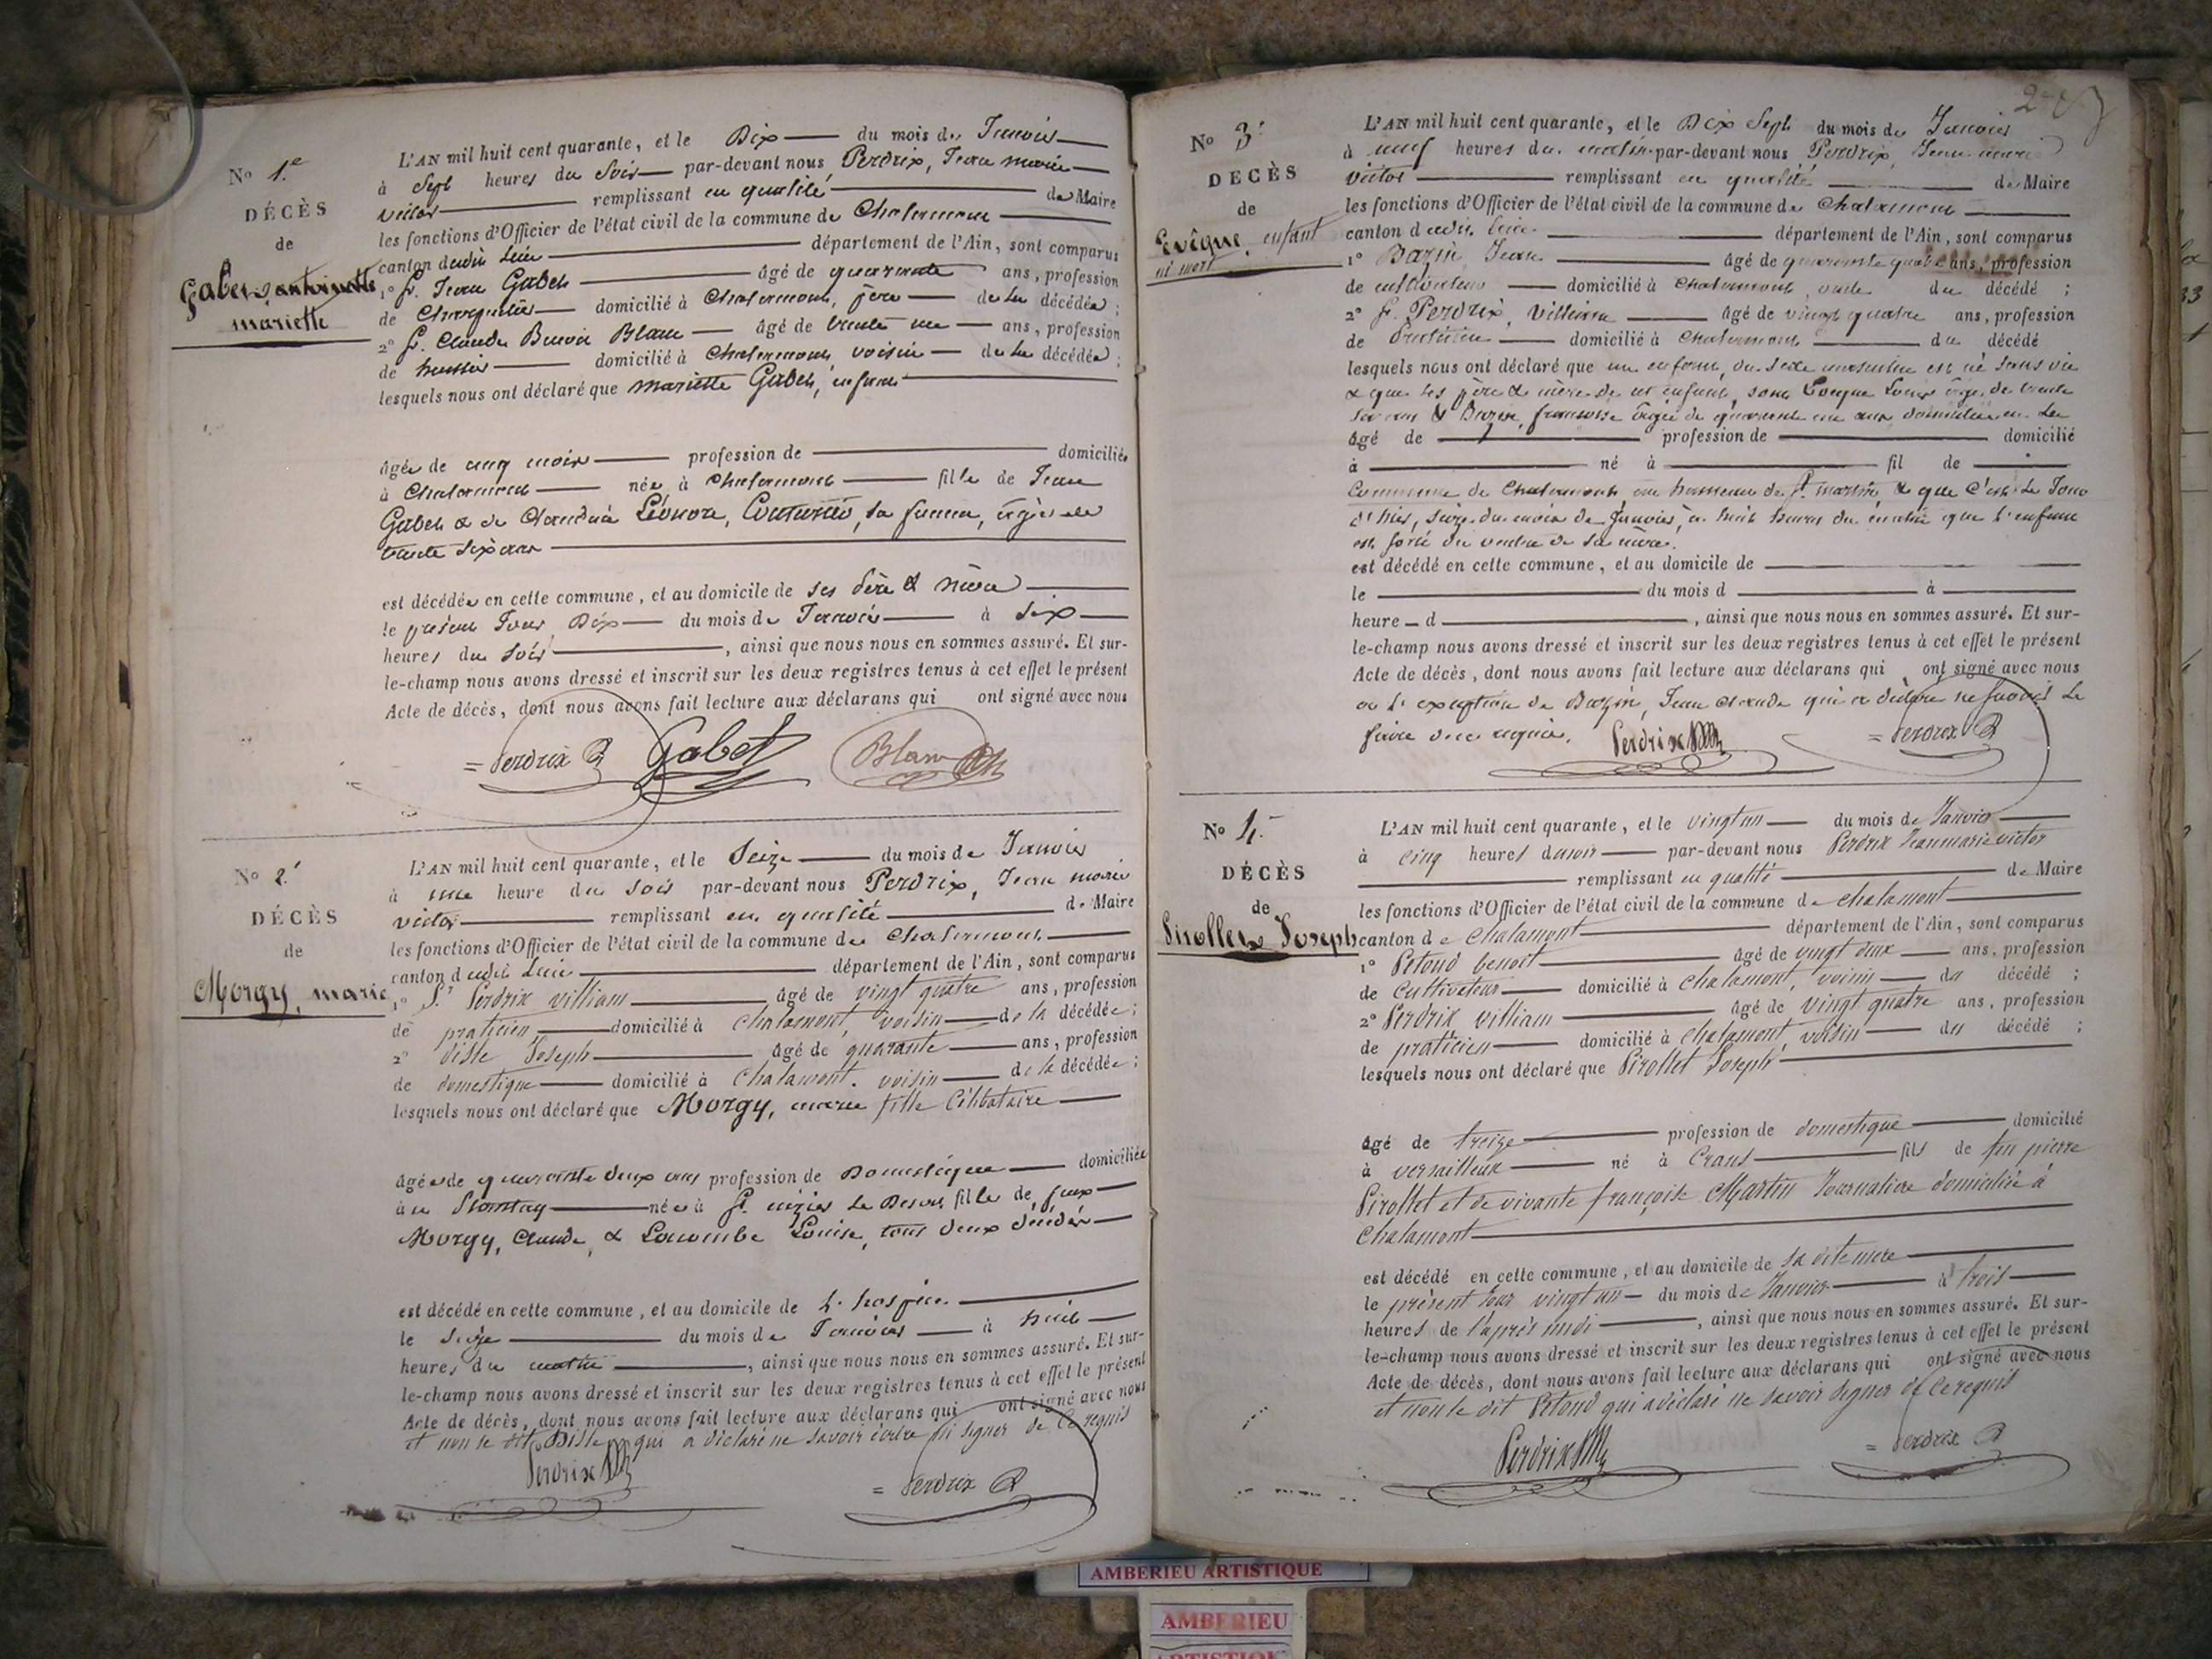 No 1.er
DÉCÈS
de
Gabet antoinette
mariette
L'AN mil huit cent quarante, et le Dix du mois de Janvier
à Sept heures du Soir par-devant nous Perdrix, Jean marie
victor remplissant en qualité de Maire
les fonctions d'Officier de l'état civil de la commune de Chalamont
canton dudit Lieu département de l'Ain, sont comparus
1° Sr. Jean Gabet âgé de quarante ans, profession
de domicilié à Chalamont, père de la décédée ;
2° Sr. Claude Benoit Blanc âgé de trente un ans, profession
de huissier domicilié à Chalamont, voisin de la décédée ;
lesquels nous ont déclaré que mariette Gabet, enfant
âgée de cinq mois profession de domiciliée
à Chalamont née à Chalamont fille de Jean
Gabet & de Claudine Léonore, Couturier, sa femme, âgée de
trente six ans
est décédée en cette commune, et au domicile de ses Père & Mère
le présent Jour, Dix du mois de Janvier à Six
heures du Soir , ainsi que nous nous en sommes assuré. Et sur-
le-champ nous avons dressé et inscrit sur les deux registres tenus à cet effet le présent
Acte de décès, dont nous avons fait lecture aux déclarans qui ont signé avec nous
= Perdrix Gabet Blanc
No 2.
DÉCÈS
de
Morgy, marie
L'AN mil huit cent quarante, et le Seize du mois de Janvier
à une heure du soir par-devant nous Perdrix, Jean marie
victor remplissant en qualité de Maire
les fonctions d'Officier de l'état civil de la commune de Chalamont
canton dudit Lieu département de l'Ain, sont comparus
1° Sr Perdrix villiam âgé de vingt quatre ans, profession
de praticien domicilié à Chalamont, voisin de la décédée ;
2° Diste Joseph âgé de quarante ans, profession
de domestique domicilié à Chalamont. voisin de la décédée ;
lesquels nous ont déclaré que Morgy, marie fille Célibataire
âgée de quarante deux ans profession de Domestique domiciliée
à née à St. nizier Le Desert fille de feux
Morgy, Claude, & Louise, tous deux décédés
est décédé en cette commune, et au domicile de L'hospice
le Seize du mois de Janvier à huit
heures du matin , ainsi que nous nous en sommes assuré. Et sur-
le-champ nous avons dressé et inscrit sur les deux registres tenus à cet effet le présent
Acte de décès, dont nous avons fait lecture aux déclarans qui ont signé avec nous
et non le dit Diste qui a déclaré ne savoir écrire ni signer de ce requis
Perdrix = Perdrix
No 3.
DECÈS
de
Evêque, enfant
né mort
L'AN mil huit cent quarante, et le Dix Sept du mois de Janvier
à neuf heures du matin par-devant nous Perdrix, Jean marie
victor remplissant en qualité de Maire
les fonctions d'Officier de l'état civil de la commune de Chalamont
canton dudit Lieu département de l'Ain, sont comparus
1° Bazin Jean âgé de quarante quatre ans, profession
de cultivateur domicilié à Chalamont, oncle du décédé ;
2° Sr. Perdrix, Villiam âgé de vingt quatre ans, profession
de Praticien domicilié à Chalamont du décédé
lesquels nous ont déclaré que un enfant, du sexe masculin est né sans vie
& que les père & mère de cet enfant, sont Evêque Louis âgé de trente
six ans & Bazin, francoise âgée de quarante un ans domiciliés en La
âgé de profession de domicilié
à né à fil de
Commune de Chalamont au hameau de St. martin & que c'est Le Jour
d'hier, seize du mois de Janvier, à huit heures du matin que L'enfant
est sorti du ventre de sa mère.
est décédé en cette commune, et au domicile de
le du mois d à
heure d , ainsi que nous nous en sommes assuré. Et sur-
le-champ nous avons dressé et inscrit sur les deux registres tenus à cet effet le présent
Acte de décès, dont nous avons fait lecture aux déclarans qui ont signé avec nous
à L'exception de Bazin, Jean claude qui a déclaré ne savoir Le
faire de ce requis. Perdrix = Perdrix
No 4.
DÉCÈS
de
Pirollet Joseph
L'AN mil huit cent quarante, et le vingt un du mois de Janvier
à cinq heures du soir par-devant nous Perdrix Jean marie victor
remplissant en qualité de Maire
les fonctions d'Officier de l'état civil de la commune de chalamont
canton de Chalamont département de l'Ain, sont comparus
1° Petoud benoit âgé de vingt deux ans, profession
de Cultivateur domicilié à Chalamont, voisin du décédé ;
2° Perdrix villiam âgé de vingt quatre ans, profession
de praticien domicilié à Chalamont, voisin du décédé ;
lesquels nous ont déclaré que Pirollet Joseph
âgé de treize profession de domestique domicilié
à versailleux né à Crans fils de feu pierre
Pirollet et de vivante françoise Martin Journalière domiciliée à
Chalamont
est décédé en cette commune, et au domicile de sa dite mere
le présent Jour vingt un du mois de Janvier à trois
heures de l'après midi , ainsi que nous nous en sommes assuré. Et sur-
le-champ nous avons dressé et inscrit sur les deux registres tenus à cet effet le présent
Acte de décès, dont nous avons fait lecture aux déclarans qui ont signé avec nous
et non le dit Petoud qui a déclaré ne savoir signer de ce requis
Perdrix = Perdrix
AMBERIEU ARTISTIQUE
AMBERIEU
ARTISTIQUE